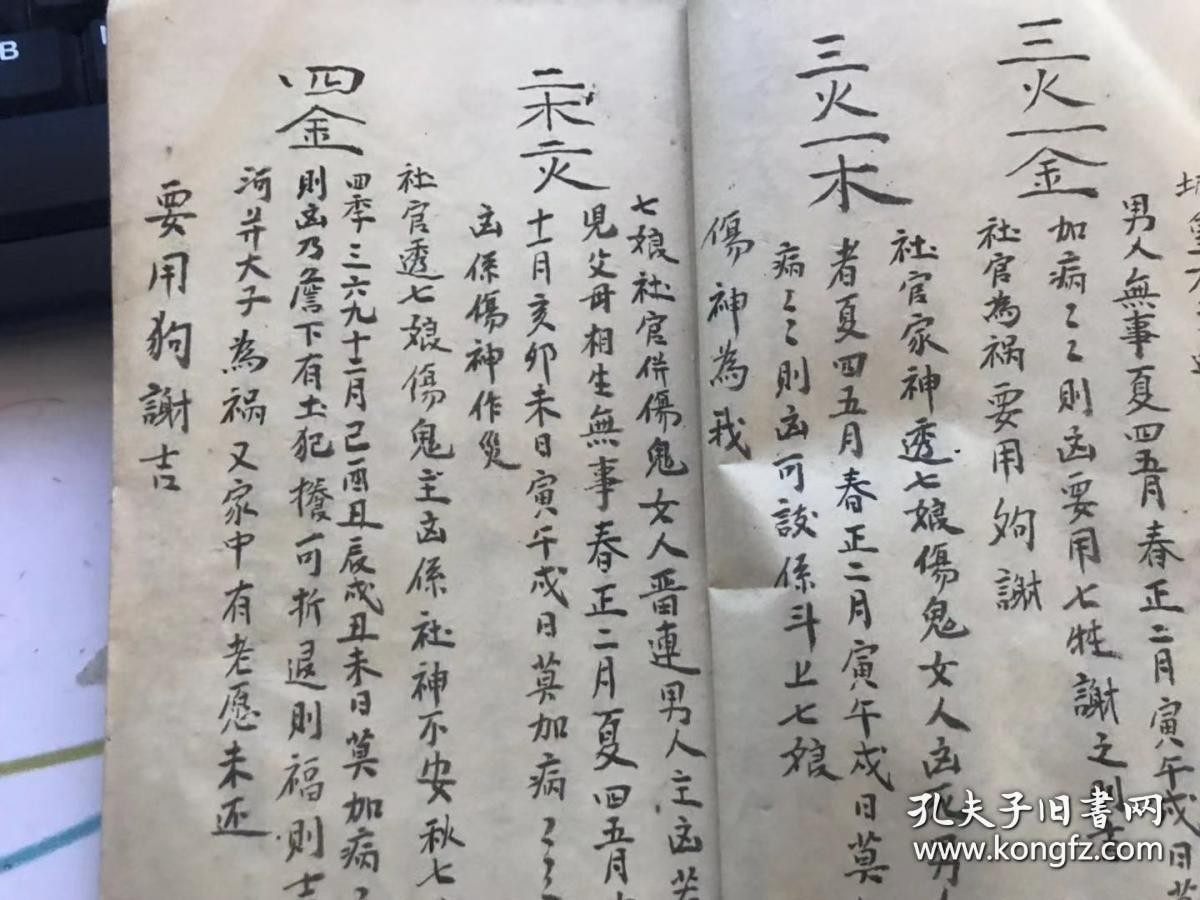 男人無事夏四五月春正二月寅午戌日莫
加病〻〻則凶要用七牲謝之則吉
三火一金
社官為禍要用狗謝
社官家神透七娘傷鬼女人凶死男人
三火一木
者夏四五月春正二月寅午戌日莫
病〻〻則凶可設係斗上七娘
傷神為我
七娘社官併傷鬼女人晋連男人主凶若
児父母相生無事春正二月夏四五月
二木二火
十一月亥卯未日寅午戌日莫加病〻〻
凶係傷神作災
社官透七娘傷鬼主凶係社神不安秋七
四金
四季三六九十二月己酉丑辰戌丑未日莫加病〻
則凶乃簷下有土犯櫈可折退則福則
河并大子為禍又家中有老愿未还
要用狗謝吉
孔夫子旧书网
www.kongfz.com
B